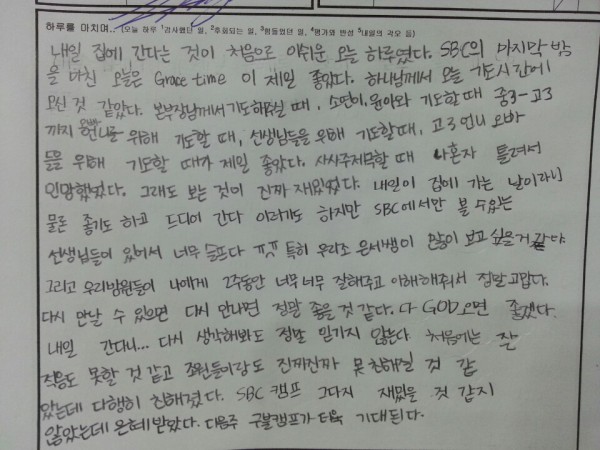 하루를 마치며.. (오늘 하루 ¹감사했던 일, ²후회되는 일, ³힘들었던 일, ⁴평가와 반성 ⁵내일의 각오 등)
내일 집에 간다는 것이 처음으로 아쉬운 오늘 하루였다. SBC의 마지막 밤
을 마친 오늘은 Grace time 이 제일 좋았다. 하나님께서 오늘 기도시간에
오신 것 같았다. 본부장님께서 기도해주실 때, 소연이, 윤아와 기도할 때 중3-고3
까지 언니를 위해 기도할 때, 선생님들을 위해 기도할 때, 고3 언니 오빠
들을 위해 기도할 때가 제일 좋았다. 할때 나혼자 틀려서
민망했었다. 그래도 보는 것이 진짜 재밌었다. 내일이 집에 가는 날이라니
물론 좋기도 하고 드디어 간다 이라기도 하지만 SBC에서만 볼 수있는
선생님들이 있어서 너무 슬프다 ㅠㅠ 특히 우리조 은서쌤이 많이 보고 싶을거 같다.
그리고 우리방원들이 나에게 2주동안 너무너무 잘해주고 이해해줘서 정말 고맙다.
다시 만날 수 있으면 다시 만나면 정말 좋을 것 같다. 다 GOD오면 좋겠다.
내일 간다니... 다시 생각해봐도 정말 믿기지 않는다. 처음에는 잘
적응도 못할 것 같고 조원들이랑도 진짜진짜 못 친해질 것 같
았는데 다행히 친해졌다. SBC 캠프 그다지 재밌을 것 같지
않았는데 은혜 받았다. 다음주 캠프가 더욱 기대된다.